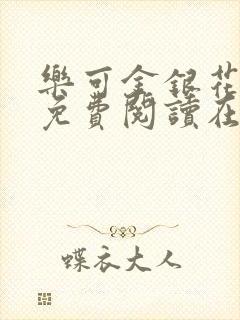 樂可金銀花
免費閱讀在
蝶衣大人